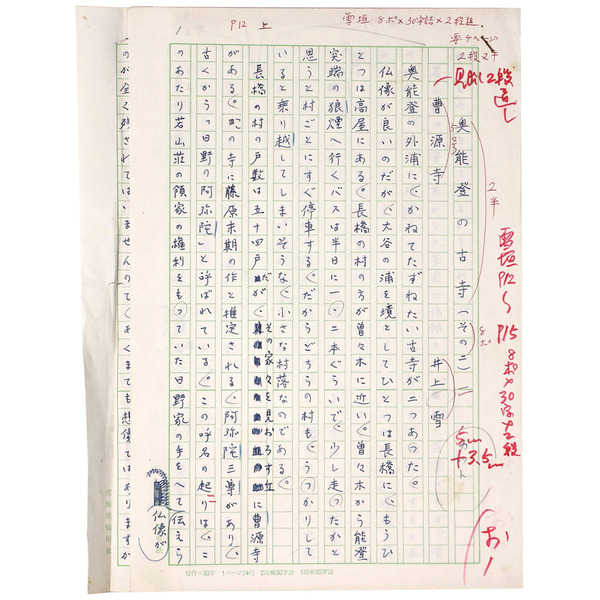 P12 上
雪垣 8ポ×30字詰×2段組
2段ヌキ
2段
直し
2半
雪垣
P12〜P15
8ポ×30字×2段
8ポ
5cm
×3.5cm
奥能登の古寺(その二)
曹源寺 井上雪
奥能登の外浦に、かねてたずねたい古寺が二つあった。
仏像が良いのだが、大谷の浦を境としてひとつは長橋に、もうひ
とつは高屋にある。長橋の村の方が曽々木に近い。曽々木から能登
突端の狼煙へ行くバスは半日に一、二本ぐらいで、少し走ったかと
思うと村ごとにすぐ停車する。だからどちらの村も、うっかりして
いると乗り越してしまいそうな、小さな村落なのである。
長橋の村の戸数は五十四戸だが、その家々を見おろす丘に曹源寺
がある。この寺に藤原末期の作と推定される、阿弥陀三尊があり、
古くから「日野の阿弥陀」と呼ばれている。この呼名の起りは、こ
のあたり若山荘の領家の権利をもっていた日野家の手をへて伝えら
仏像が
のが全く残されてはいませんので、あくまでも想像ではありますが
12行×30字